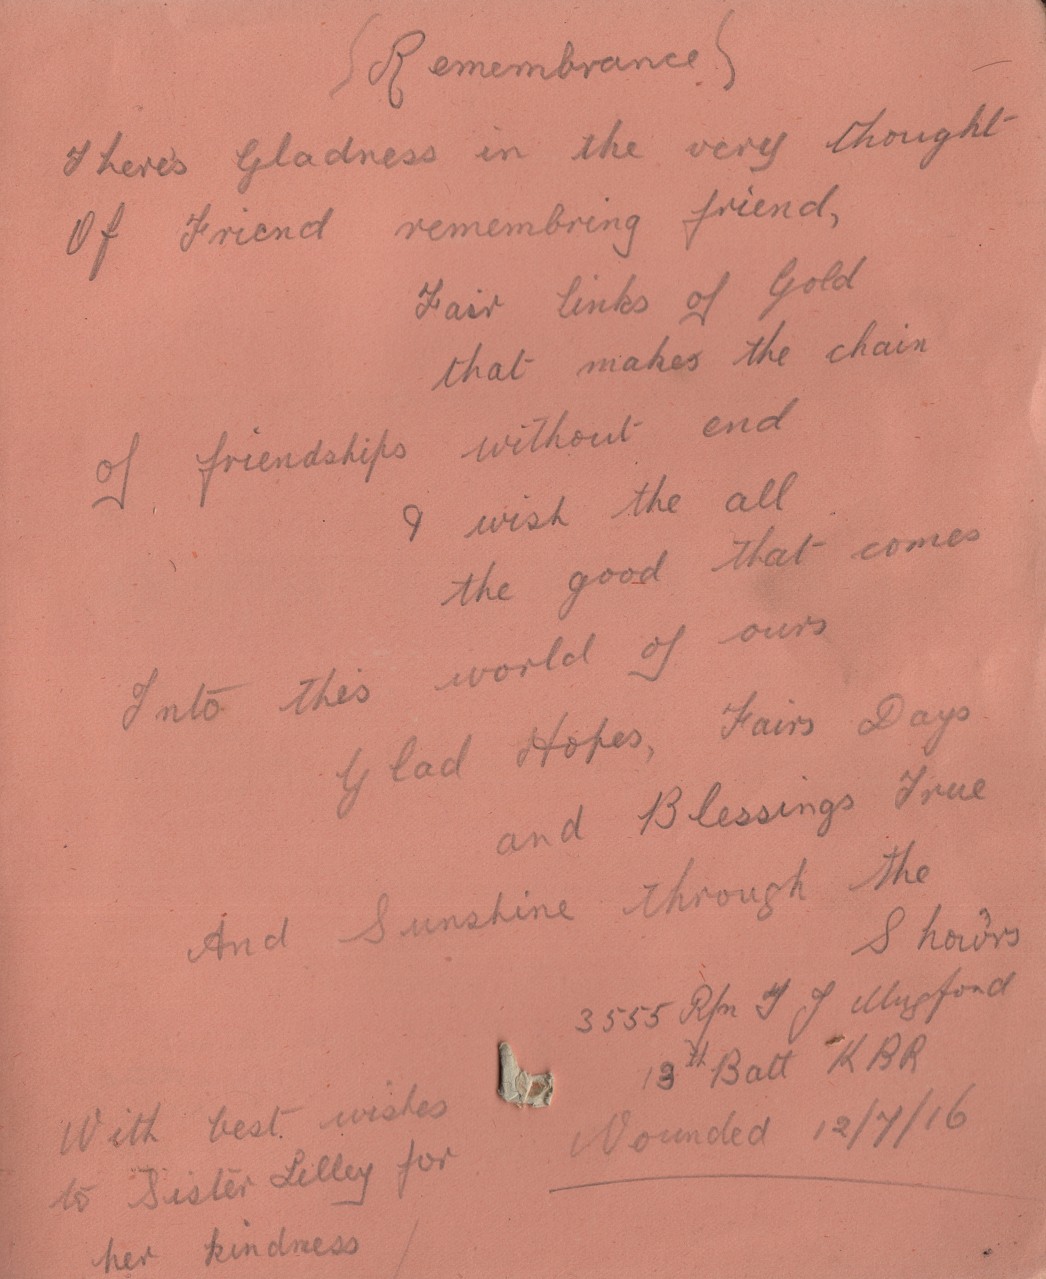 (Remembrance)
Theres Gladness in the very thought
Of Friend remembring friend,
Fair links of Gold
that makes the chain
of friendships without end
I wish the all
the good that comes
Into this world of ours
Glad Hopes, Fairs Days
and Blessings True
And Sunshine through the
Show'rs
3555 Rfn T J Mugford
13th Batt KRR
Wounded 12/7/16
With best wishes
to Sister Lilley for
her kindness